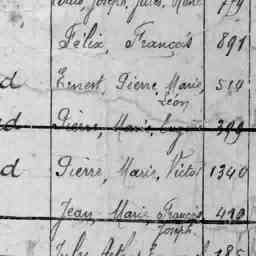 Louis, Joseph, Jules, René 779
Félix, François 891
d Ernest, Pierre, Marie, 519
Léon
d Pierre, Marie, Eugène 399
d Pierre, Marie, Victor 1340
Jean, Marie, François 410
Joseph
Jules, Arthur 185